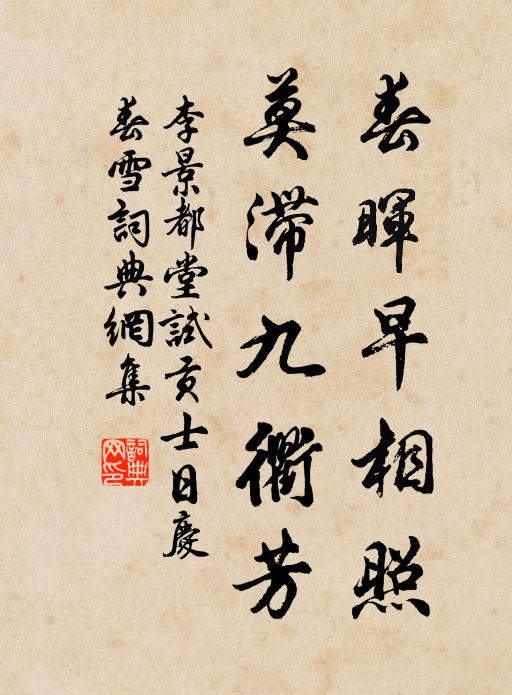 春暉早相照
莫滯九衢芳
李景都堂試貢士日慶
春雪詞典網集
詞典網印